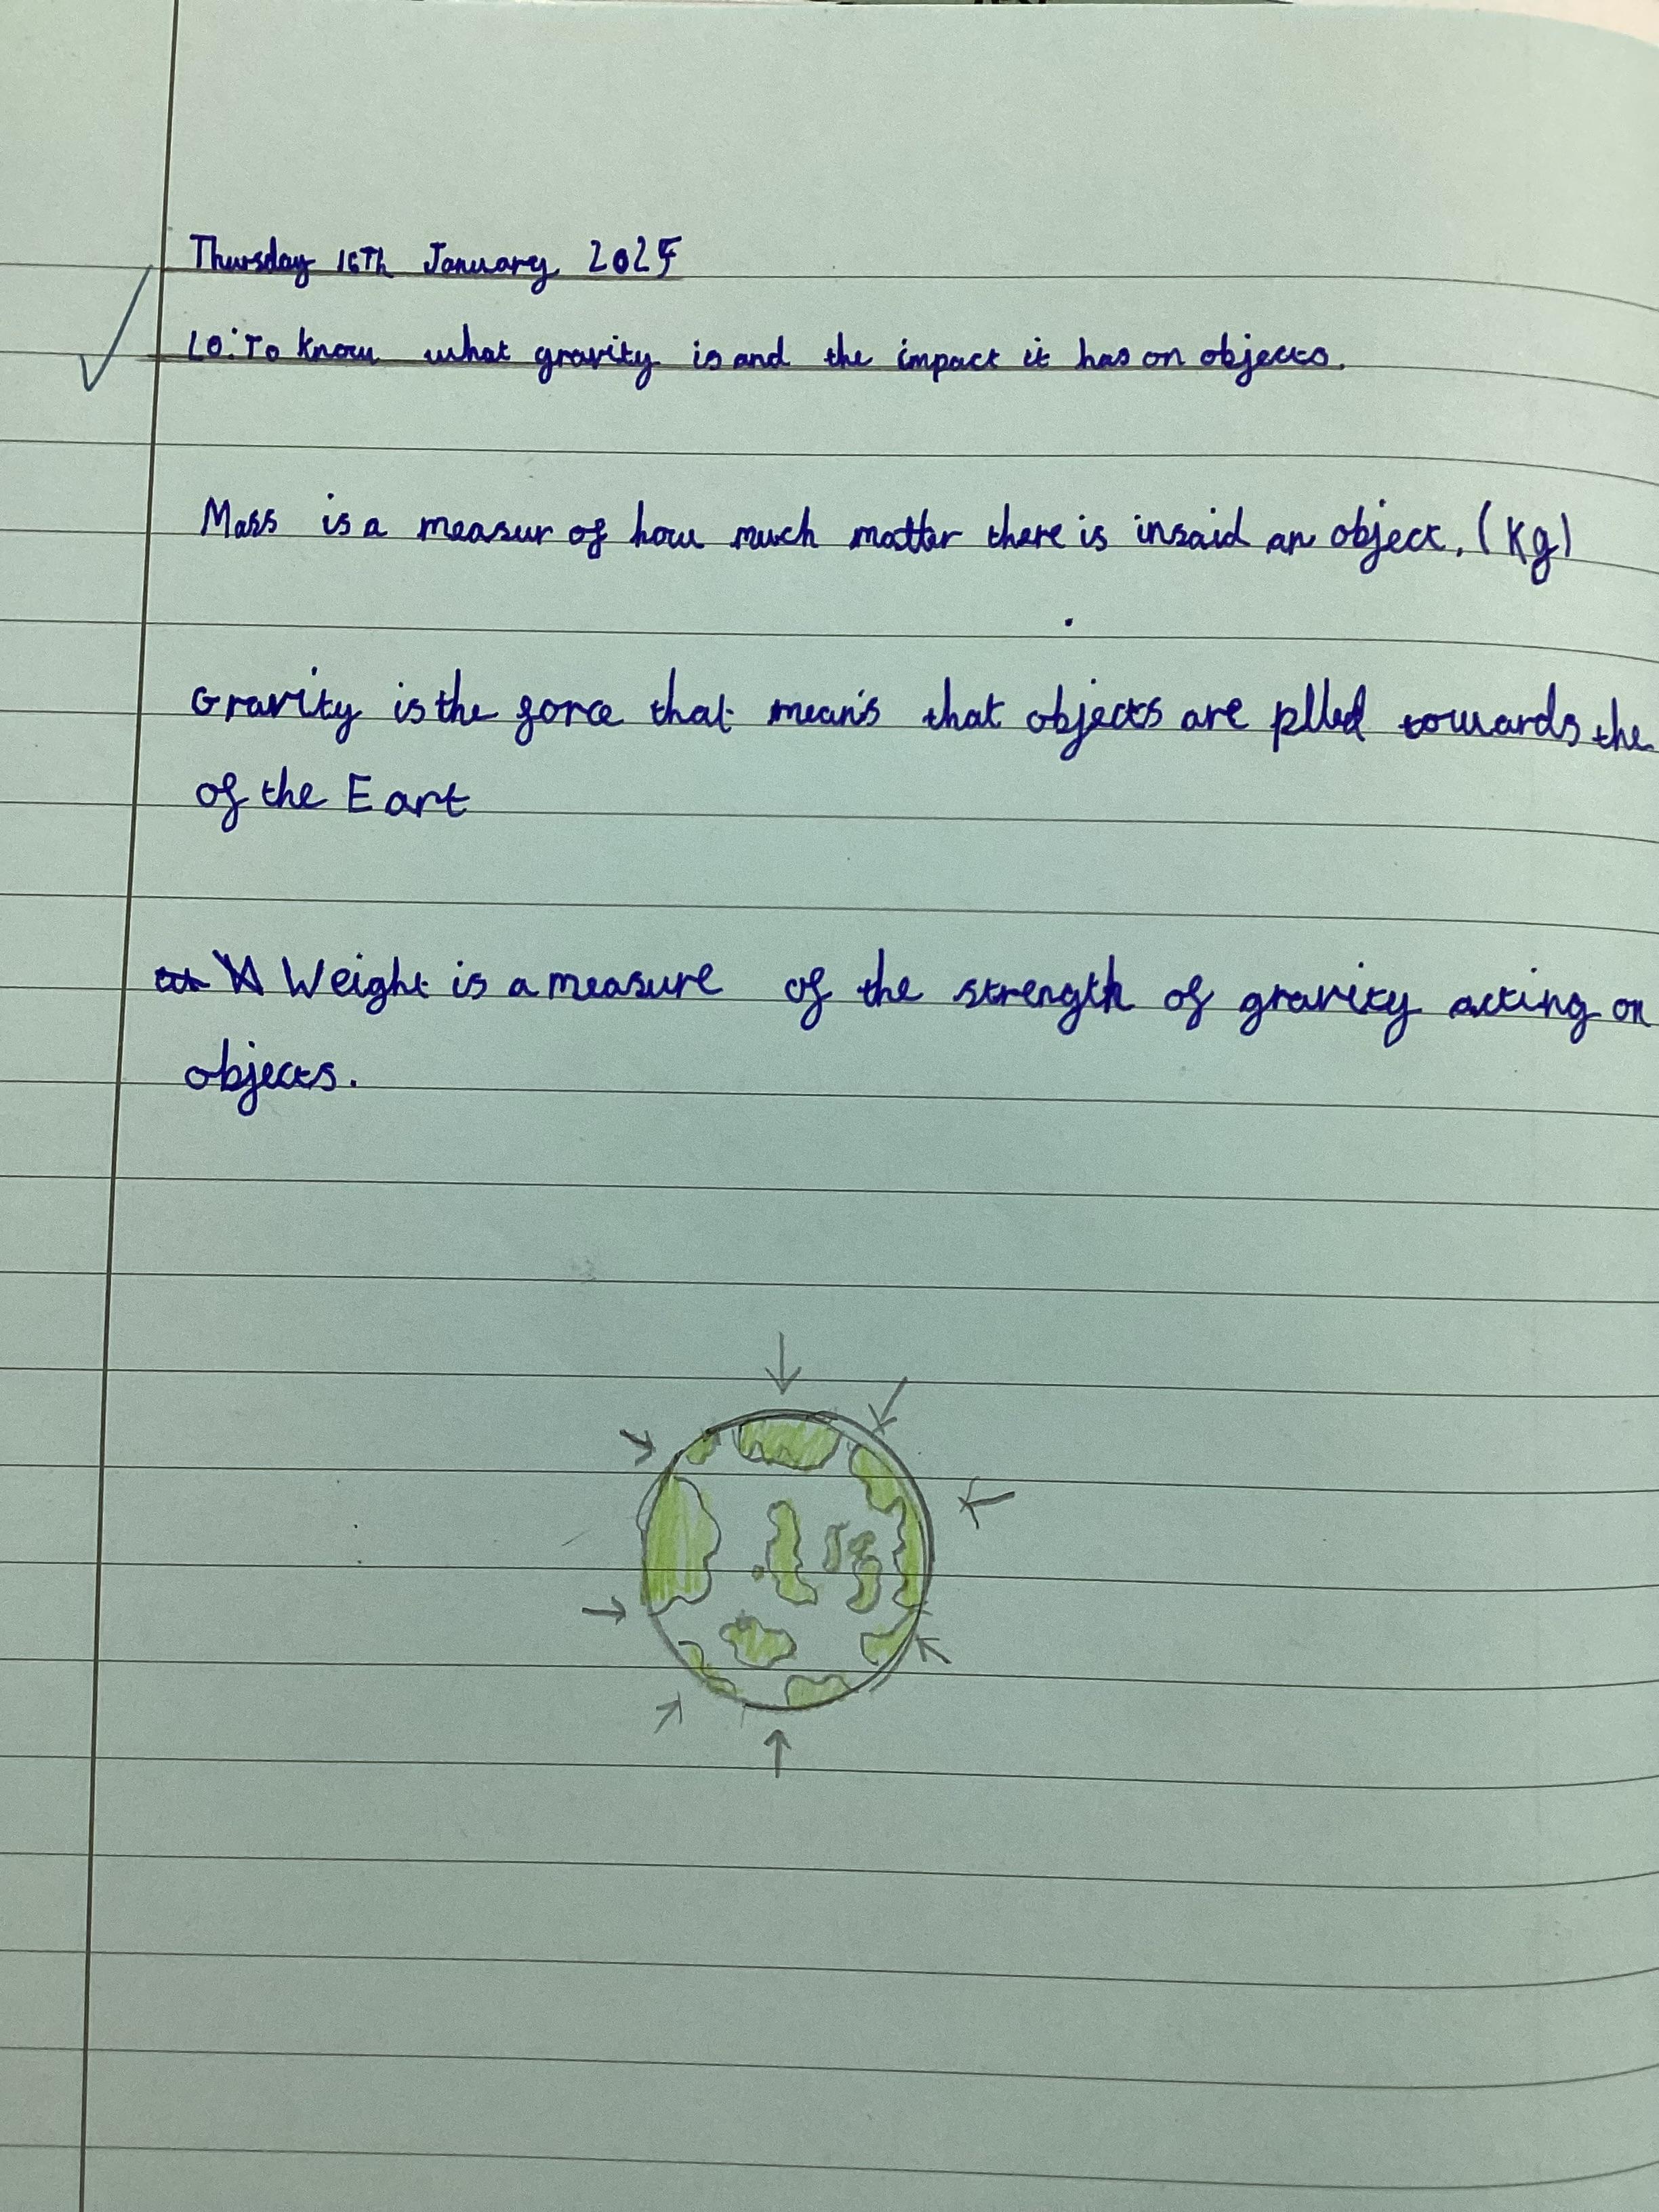 Thursday 16Th January 2025
LO: To know what gravity is and the impact it has on objects.
Mass is a measur of how much matter there is insaid an object. (Kg)
Gravity is the force that means that objects are plled towards the
of the Eart
Weight is a measure of the strength of gravity acting on
objects.